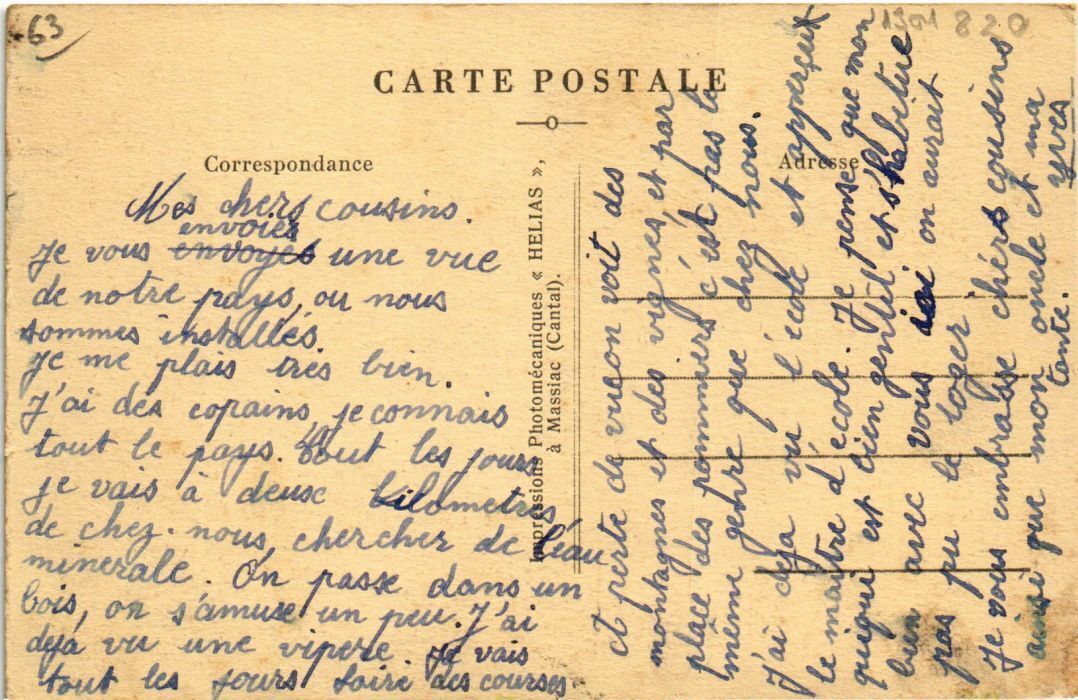 63
1391 820
CARTE POSTALE
Correspondance
Adresse
Mes chers cousins.
Je vous envoies envoyes une vue
de notre pays, ou nous
sommes installés.
Je me plais très bien.
J'ai des copains, je connais
tout le pays. Tout les jours
je vais à deux kilometres
de chez-nous, chercher de l'éau
minerale. On passe dans un
bois, on s'amuse un peu. J'ai
dejà vu une vipere. Je vais
tout les jours faire des courses
Impressions Photomécaniques « HELIAS »,
à Massiac (Cantal).
et perte de vue on voit des
montagnes et des vignes et par
place des pommiers c'est pas le
même genhre que chez nous.
J'ai deja vu l'école et apperçuit
le maitre d'ecole. Je pense que mon
guigui est bien gentil et s'habitue
bien avec vous ici on aurait
pas pu le loger
Je vous embrasse chérs cousins
ainsi que mon oncle et ma
tante. yves